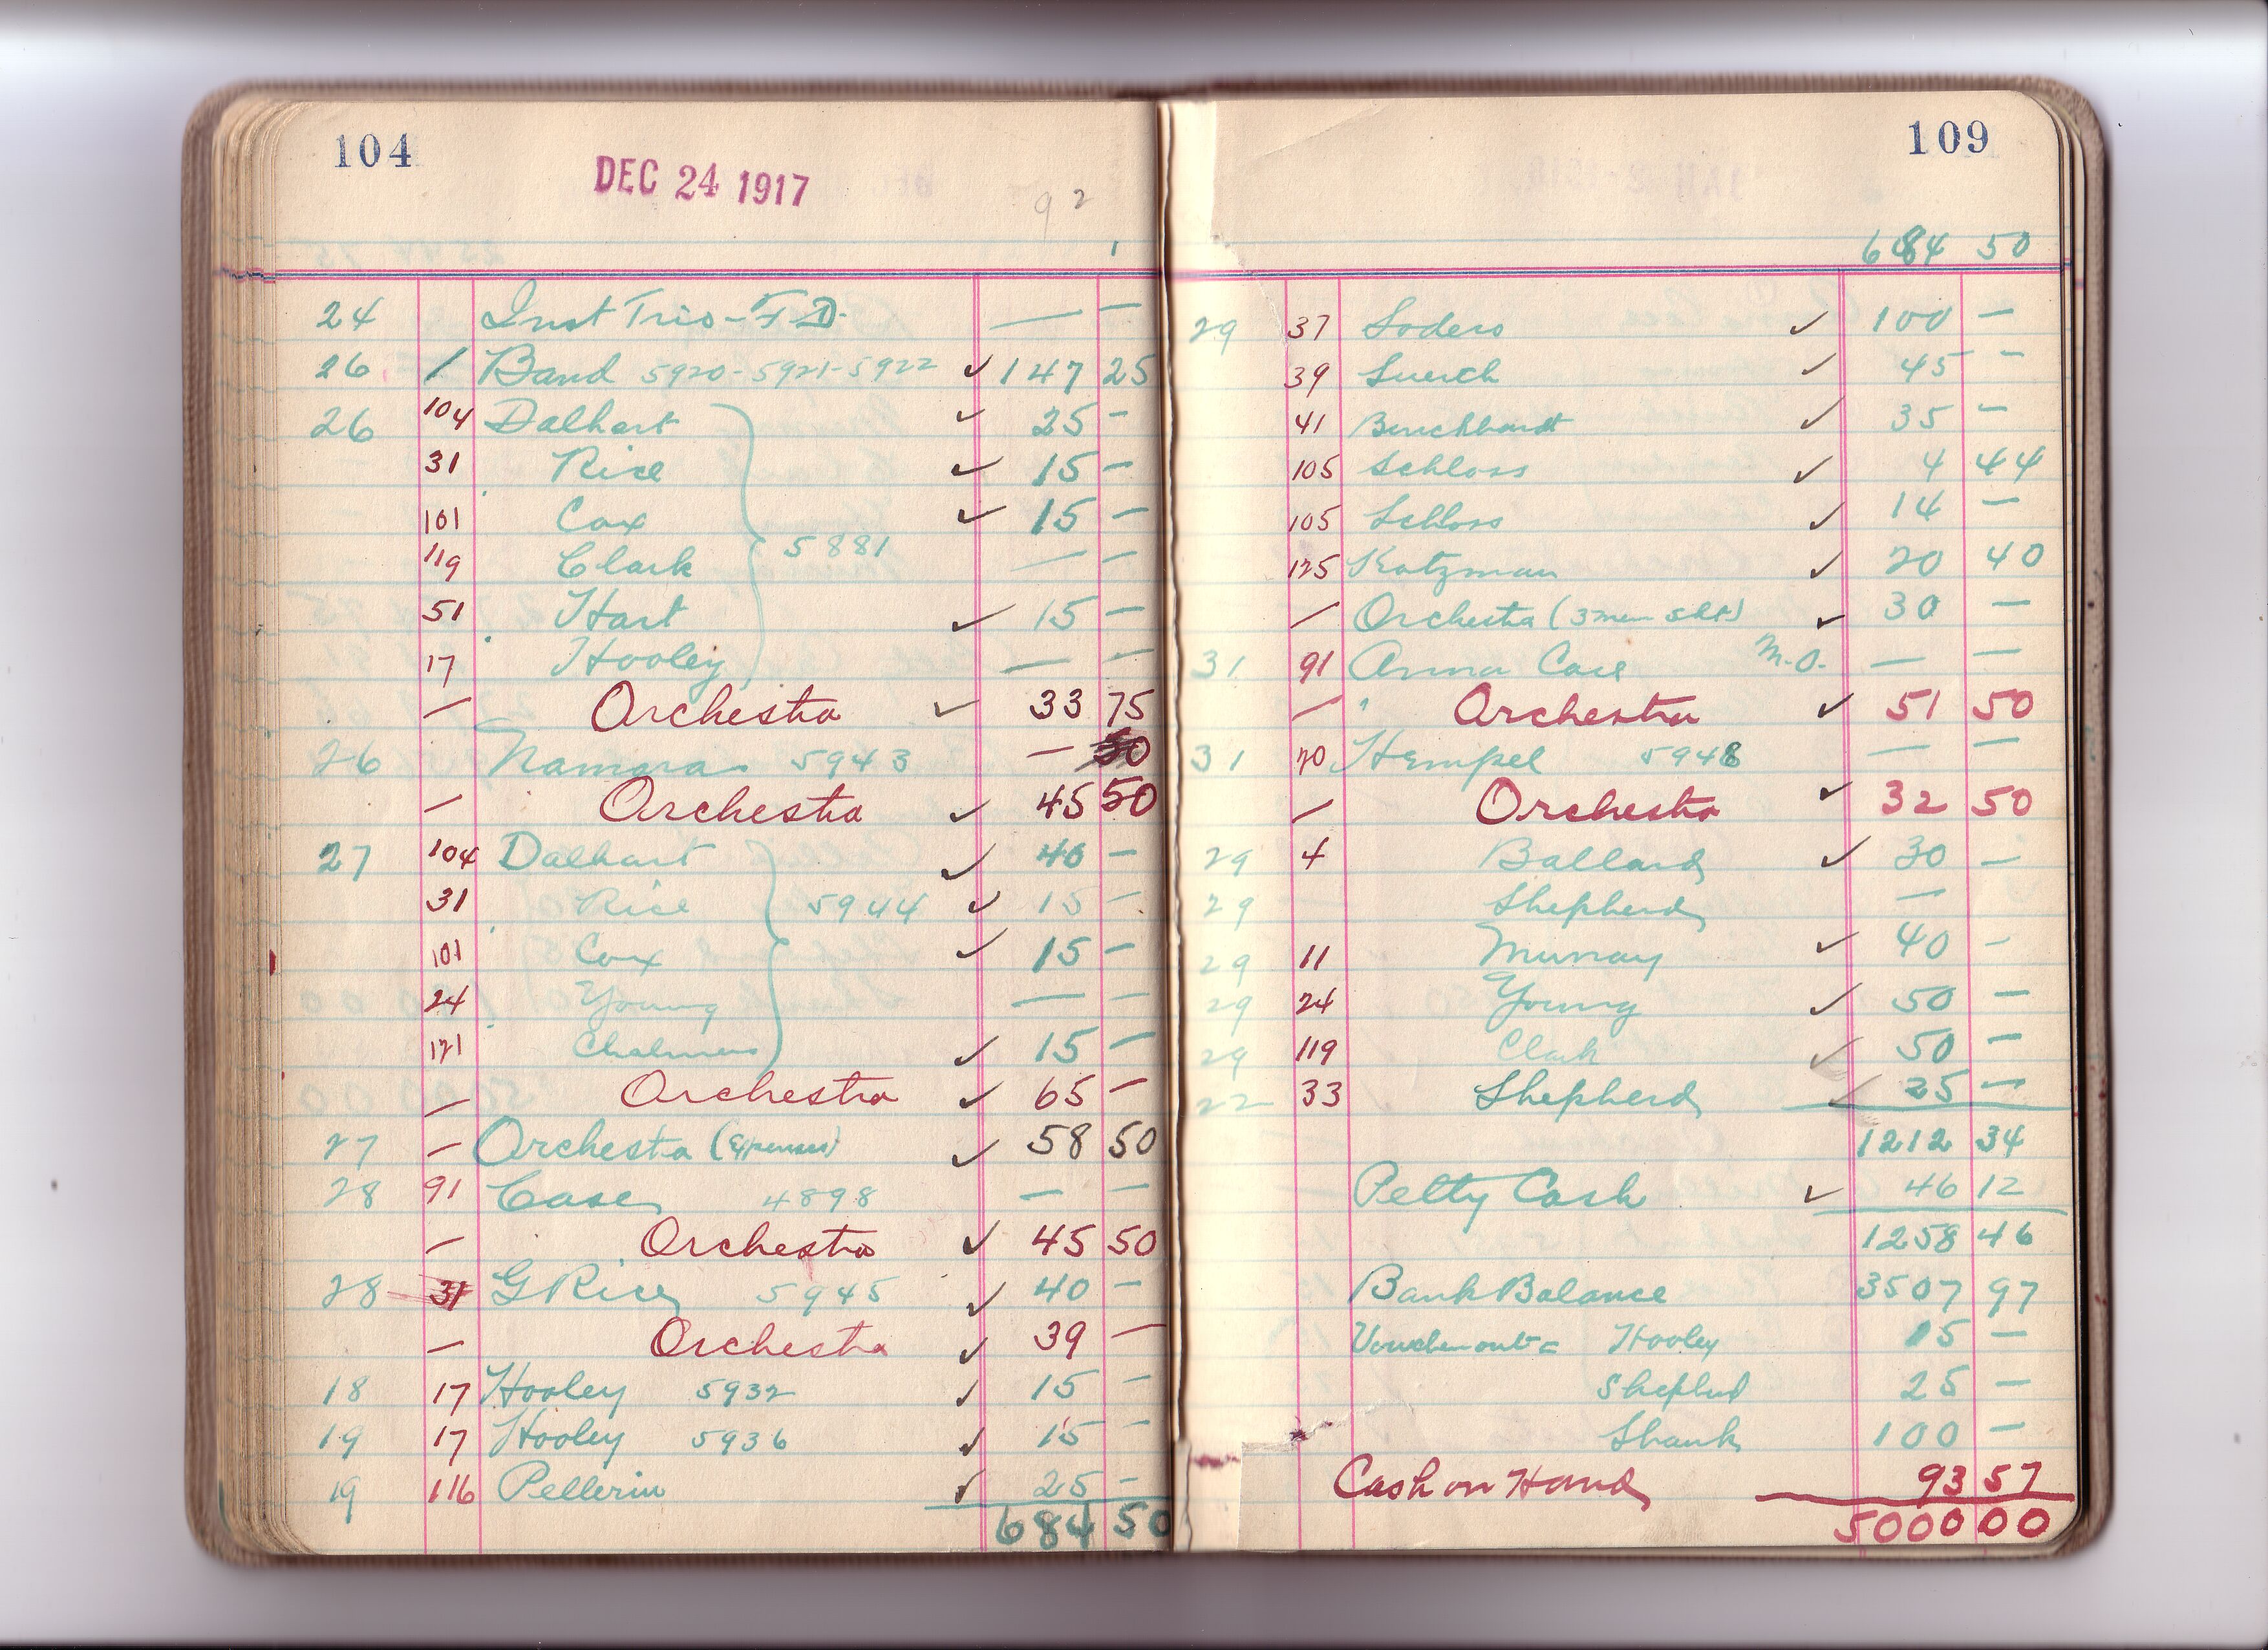 104
DEC 24 1917
92
24 Inst Trio - F D -
26 1 Band 5920-5921-5922 ✓ 147 25
26 104 Dalhart ✓ 25 -
31 Rice ✓ 15 -
101 Cox ✓ 15 -
119 Clark 5881 — -
51 Hart ✓ 15 -
17 Hooley — -
— Orchestra ✓ 33 75
26 Namara 5943 —
— Orchestra ✓ 45 50
27 104 Dalhart ✓ 40 -
31 Rice 5944 ✓ 15 -
101 Cox ✓ 15 -
24 Young — -
121 Chalmers ✓ 15 -
— Orchestra ✓ 65 -
27 — Orchestra (Expenses) ✓ 58 50
28 91 Case 4898 — -
— Orchestra ✓ 45 50
28 31 G Rice 5945 ✓ 40 -
— Orchestra ✓ 39 -
18 17 Hooley 5932 ✓ 15 -
19 17 Hooley 5936 ✓ 15 -
19 116 Pellerin ✓ 25 -
684 50
109
684 50
29 37 Soders ✓ 100 -
39 Luerch ✓ 45 -
41 Burckhardt ✓ 35 -
105 Schloss ✓ 4 44
105 Schloss ✓ 14 -
125 Katzman ✓ 20 40
— Orchestra (3 men ) ✓ 30 -
31 91 Anna Case M.O. — -
— Orchestra ✓ 51 50
31 70 Hempel 5948 — -
— Orchestra ✓ 32 50
29 4 Ballard ✓ 30 -
29 Shepherd —
29 11 Murray ✓ 40 -
29 24 Young ✓ 50 -
29 119 Clark ✓ 50 -
22 33 Shepherd ✓ 25 -
1212 34
Petty Cash ✓ 46 12
1258 46
Bank Balance 3507 97
Voucher out = Hooley 15 -
Shepherd 25 -
Shank 100 -
Cash on Hand 93 57
5000 00